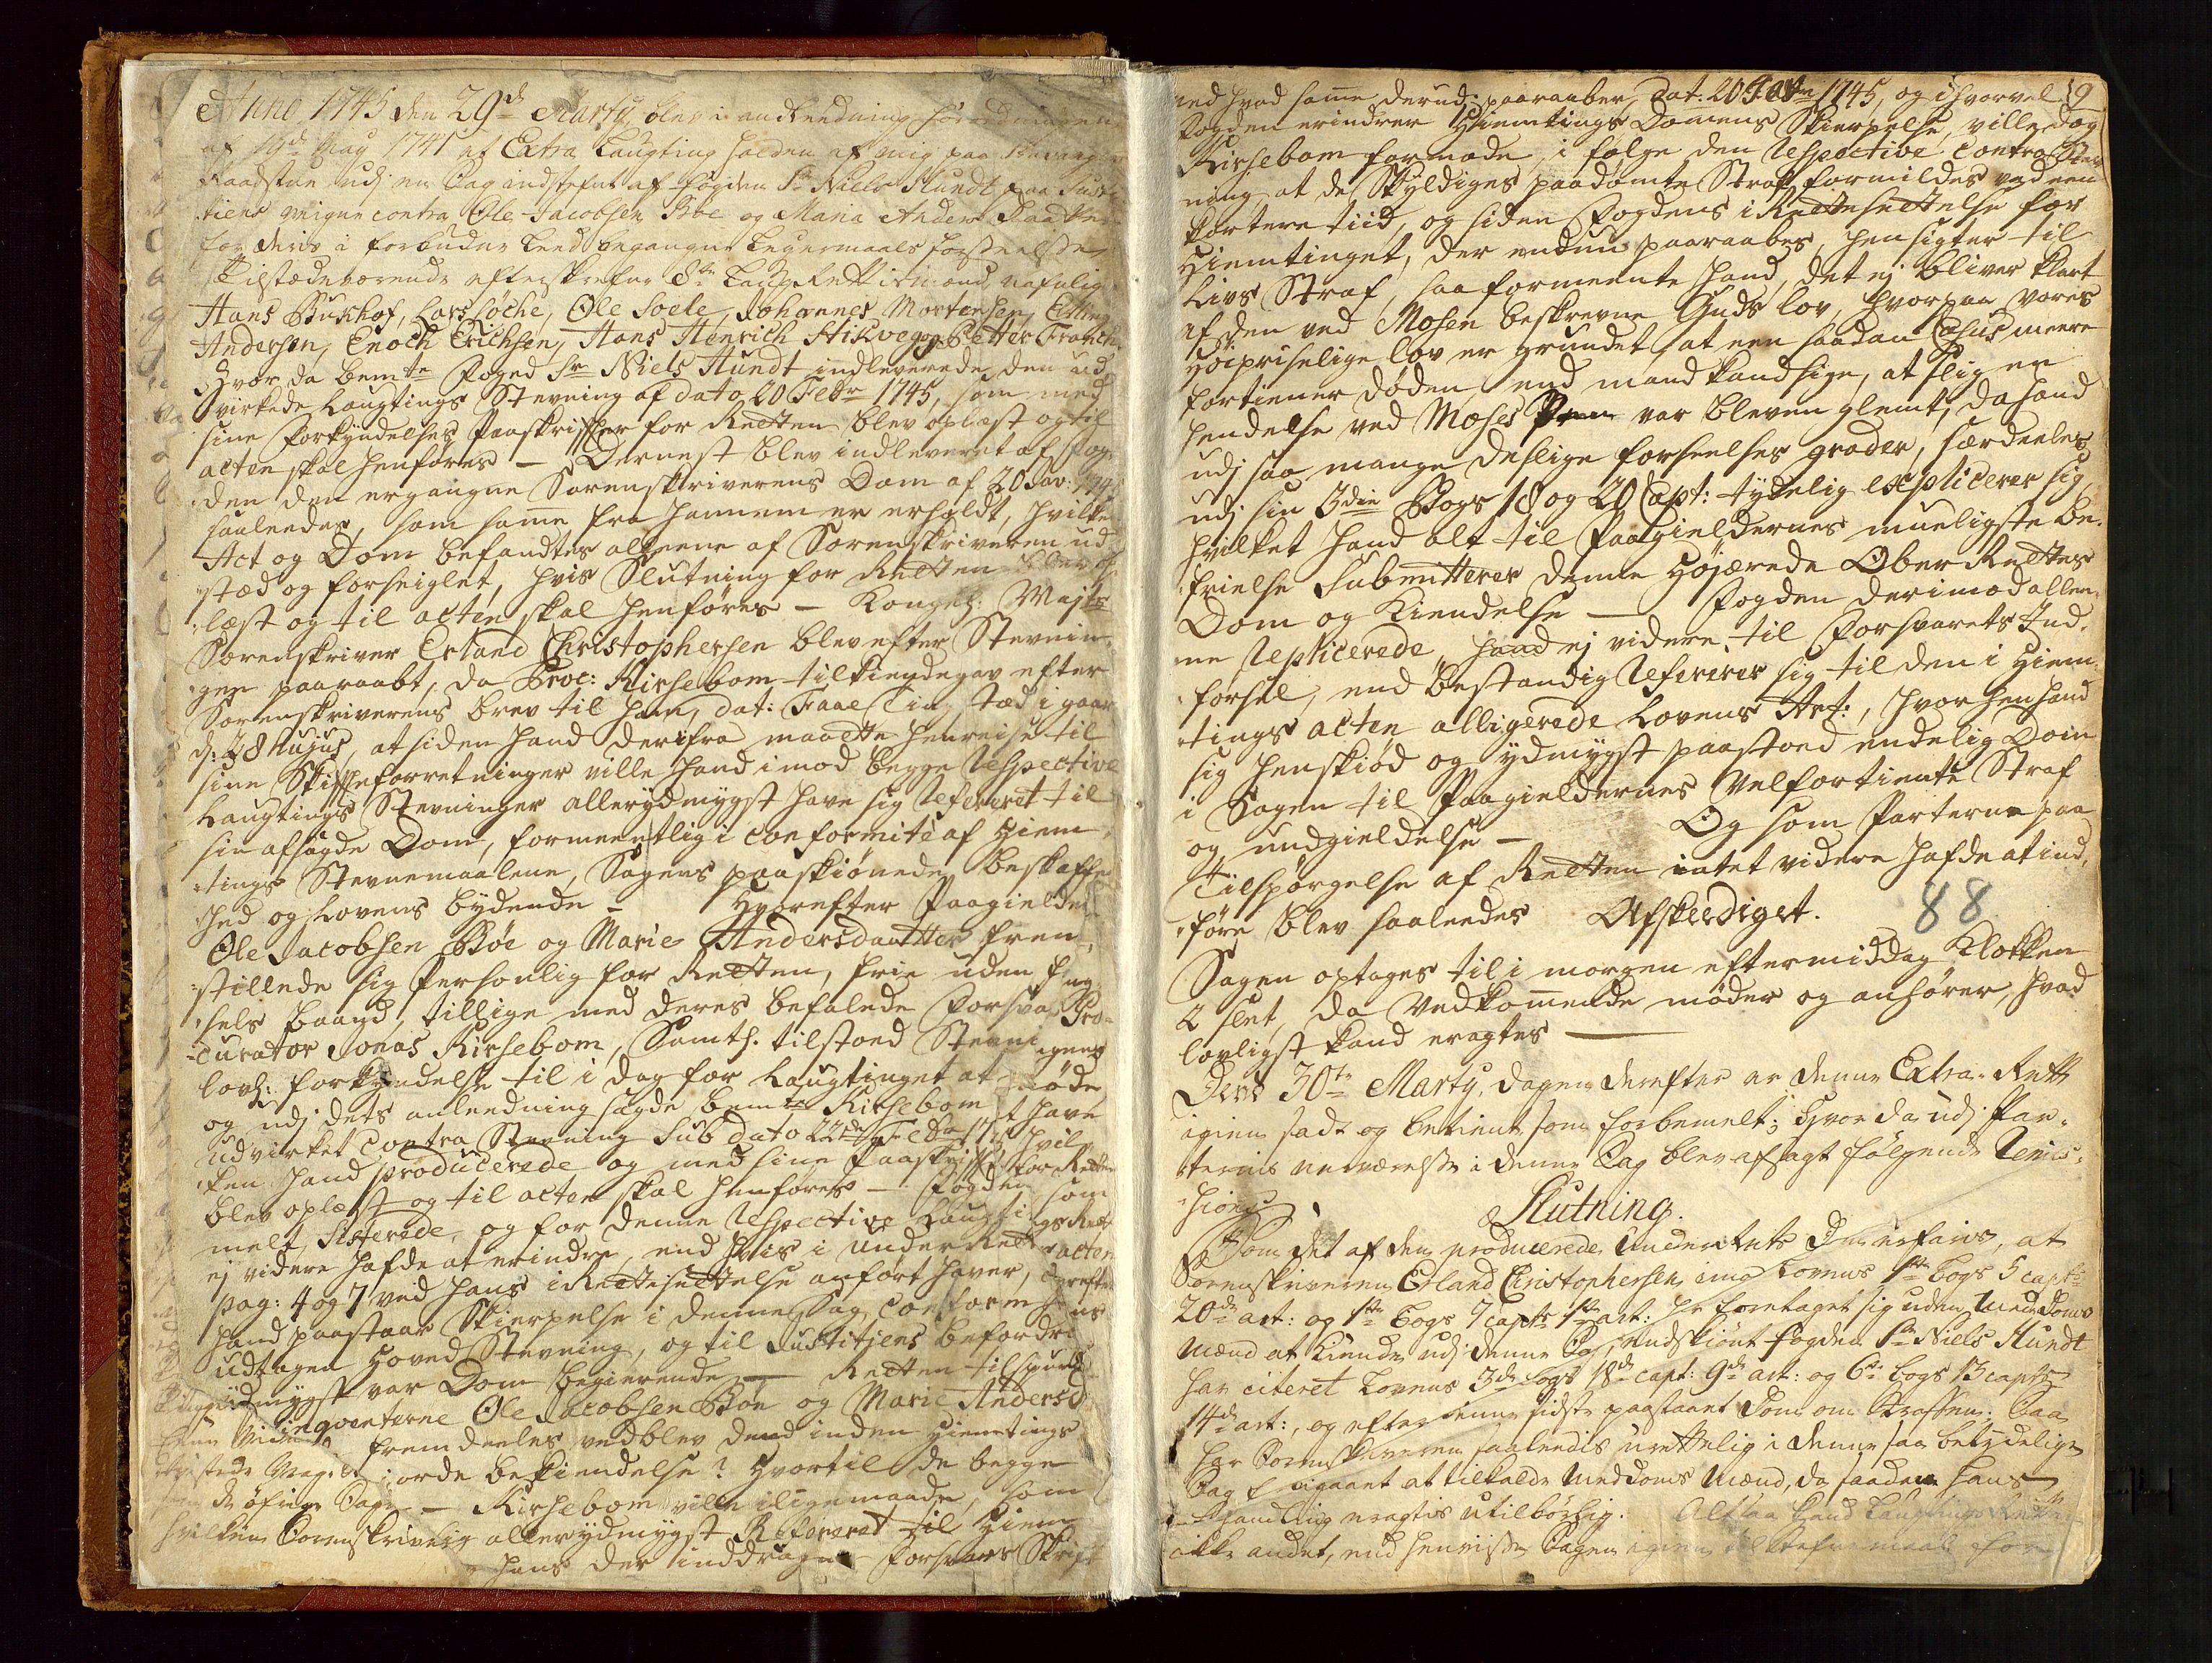 Anno 1745 den 29de Marty, blev i anleedning forordningen
af 19de May 1741 et Extra Laugting holden af mig paa Stavanger
Raadstue udj en Sag indstefnt af Fogden Sr Niels Hundt paa Justi-
tiens vegne contra Ole Jacobsen Bøe og Maria Anders Daatter
for deris i forbuden Leed begangne Leyermaals forseelse,
Tilstædeværende efterskrefne 8te LaugRettismænd, nafnlig
Hans Bukhof, Lars Loche, Ole Soele, Johannes Mortensen, Elling
Andersen, Enoch Erichsen, Hans Henrich Stikveg og Petter Franch.
Hvor da bemte Foged Sr Niels Hundt indleverede den ud-
virkede Laugtings Stevning af dato 20 Febr 1745, som med
sine Forkyndelses Paaskrifter for Retten blev oplæst og til
acten skal henføres – Dernest blev indleveret af Fog-
den den ergangne Sorenskriverens Dom af 20 Jav: 1745
saaleedes, som samme fra hannem er erholdt, hvilken
Act og Dom befandtes alleene af Sorenskriveren ud-
stæd og forseiglet, hvis Slutning for Retten blev op-
læst og til acten skal henføres – Kongel: Majts
Sorenskriver Erland Christophersen blev efter Stevnin-
gen paaraabt, da Proc: Kirsebom tilkiendegav efter
Sorenskriverens brev til ham, dat: Faae Tingstæd i gaar
d: 28 hujus, at siden hand derifra maatte henreise til
sine Skifteforretninger ville hand imod begge Respective
Laugtings Stevninger allerydmygst have sig Refereret til
sin afsagde Dom, formeentlig i conformite af Hiem-
tings Stevnemaalene, Sagens paaskiønnede beskaffen-
hed og Lovens bydende – Hvorefter Paagieldende
Ole Jacobsen Bøe og Marie Andersdaatter frem-
stillede sig Personlig for Retten, frie uden fæng-
sels baand, tillige med deres befalede Forsvar Pro-
curator Jonas Kirsebom, Samtl. tilstoed Stevningens
lovl: forkyndelse til i dag for Laugtinget at møde
og udj dets anleedning sagde bemte Kirsebom at have
udvirket Contra Stevning Sub dato 22de Febr 1745 hvil-
ken hand producerede og med sine Paaskrifter for Retten
blev oplæst og til acten skal henføres – Fogden som
melt, Sisterede, og for denne Respective Laugtings Rett
ej videre hafde at erindre, end hvis i UnderRettens acten
pag: 4 og 7 ved hans iRettesettelse anført haver, hvorefter
hand paastaar Skierpelse i denne Sag, conform hans
udtagen Hoved Stevning, og til Justitiens befordring
ydmygst var Dom begierende – Retten tilspurte
Delinqventerne Ole Jacobsen Bøe og Marie Andersd
fremdeeles vedblev deend inden Hiemtings
giorde bekiendelse? Hvortil de begge
– Kirsebom ville iligemaade, som
Sorenskriverens allerydmygst Refereret til Hiem
hans der inddragne Forsvars Skrift
med hvad samme derudj paaraaber, Dat: 20 Febr 1745, og ihvorvel 9
Fogden erindrer Hiemtings Domens Skierpelse, ville dog
Kirsebom formode, i følge den Respective Contra Stev-
ning, at de Skyldiges paadømte Straf formildes ved een
kortere tiid, og siden Fogdens iRettesettelse for
Hiemtinget, der endnu paaraabes, hensigter til
Livs Straf, saa formeente hand, det ej bliver klart
af den ved Mosen beskrevne Guds lov, hvorpaa vores
Højpriselige lov er grundet, at een saadan Casus meere
fortiener døden, end mand kand sige, at slig en
hendelse ved Moses Pen var bleven glemt, da hand
udj saa mange deslige forseelses grader, særdeeles
udj sin 3die Bogs 18 og 20 Capt: tydelig expliserer sig,
hvilket hand alt til Paagieldernes mueligste be-
frielse Submitterer denne Højærede Ober Rettes
Dom og Kiendelse – Fogden derimod allee-
ne Replicerede, hand ej videre til Forsvarets Ind-
forsel, end bestandig Refererer sig til den i Hiem-
tings acten alligerede Lovens Art:, hvorhen hand
sig henskiød og ydmygst paastoed endelig Dom
i Sagen til Paagieldernes Velfortiente Straf
og undgieldelse – Og som Parterne paa
Tilspørgelse af Retten intet videre hafde at ind-
føre blev saaleedes Afskeediget.
88
Sagen optages til i morgen eftermiddag Klokken
2 slet, da Vedkommende møder og anhører, hvad
lovligst kand eragtes –
Den 30te Marty, dagen derefter er denne Extra Rett
igien sadt og betient som forbemelt; Hvor da udj Par-
ternis nærværelse i denne Sag blev afsagt følgende Revis-
sions
Slutning.
Som det af den producerede Underrets Dom erfares, at
Sorenskriveren Erland Christophersen imod Lovens 1te bogs 5 capts
20de art: og 1te bogs 7 capts 1te art: har foretaget sig uden Meddoms
Mænd at kiende udj denne Sag, endskiønt Fogden Sr Niels Hundt
har citeret Lovens 3de bogs 18de capt: 9de art: og 6te bogs 13 capts
14de art:, og efter denne sidste paastaaet Dom om Straffen; Saa
har Sorenskriveren saaleedis urettelig i denne saa betydelig
Sag forbigaaet at tilkalde Meddoms Mænd, da saadan hans
handling eragtis utilbørlig. Altsaa kand Laugtings Retten
ikke andet, end henviise Sagen igien til Stefnemaal for